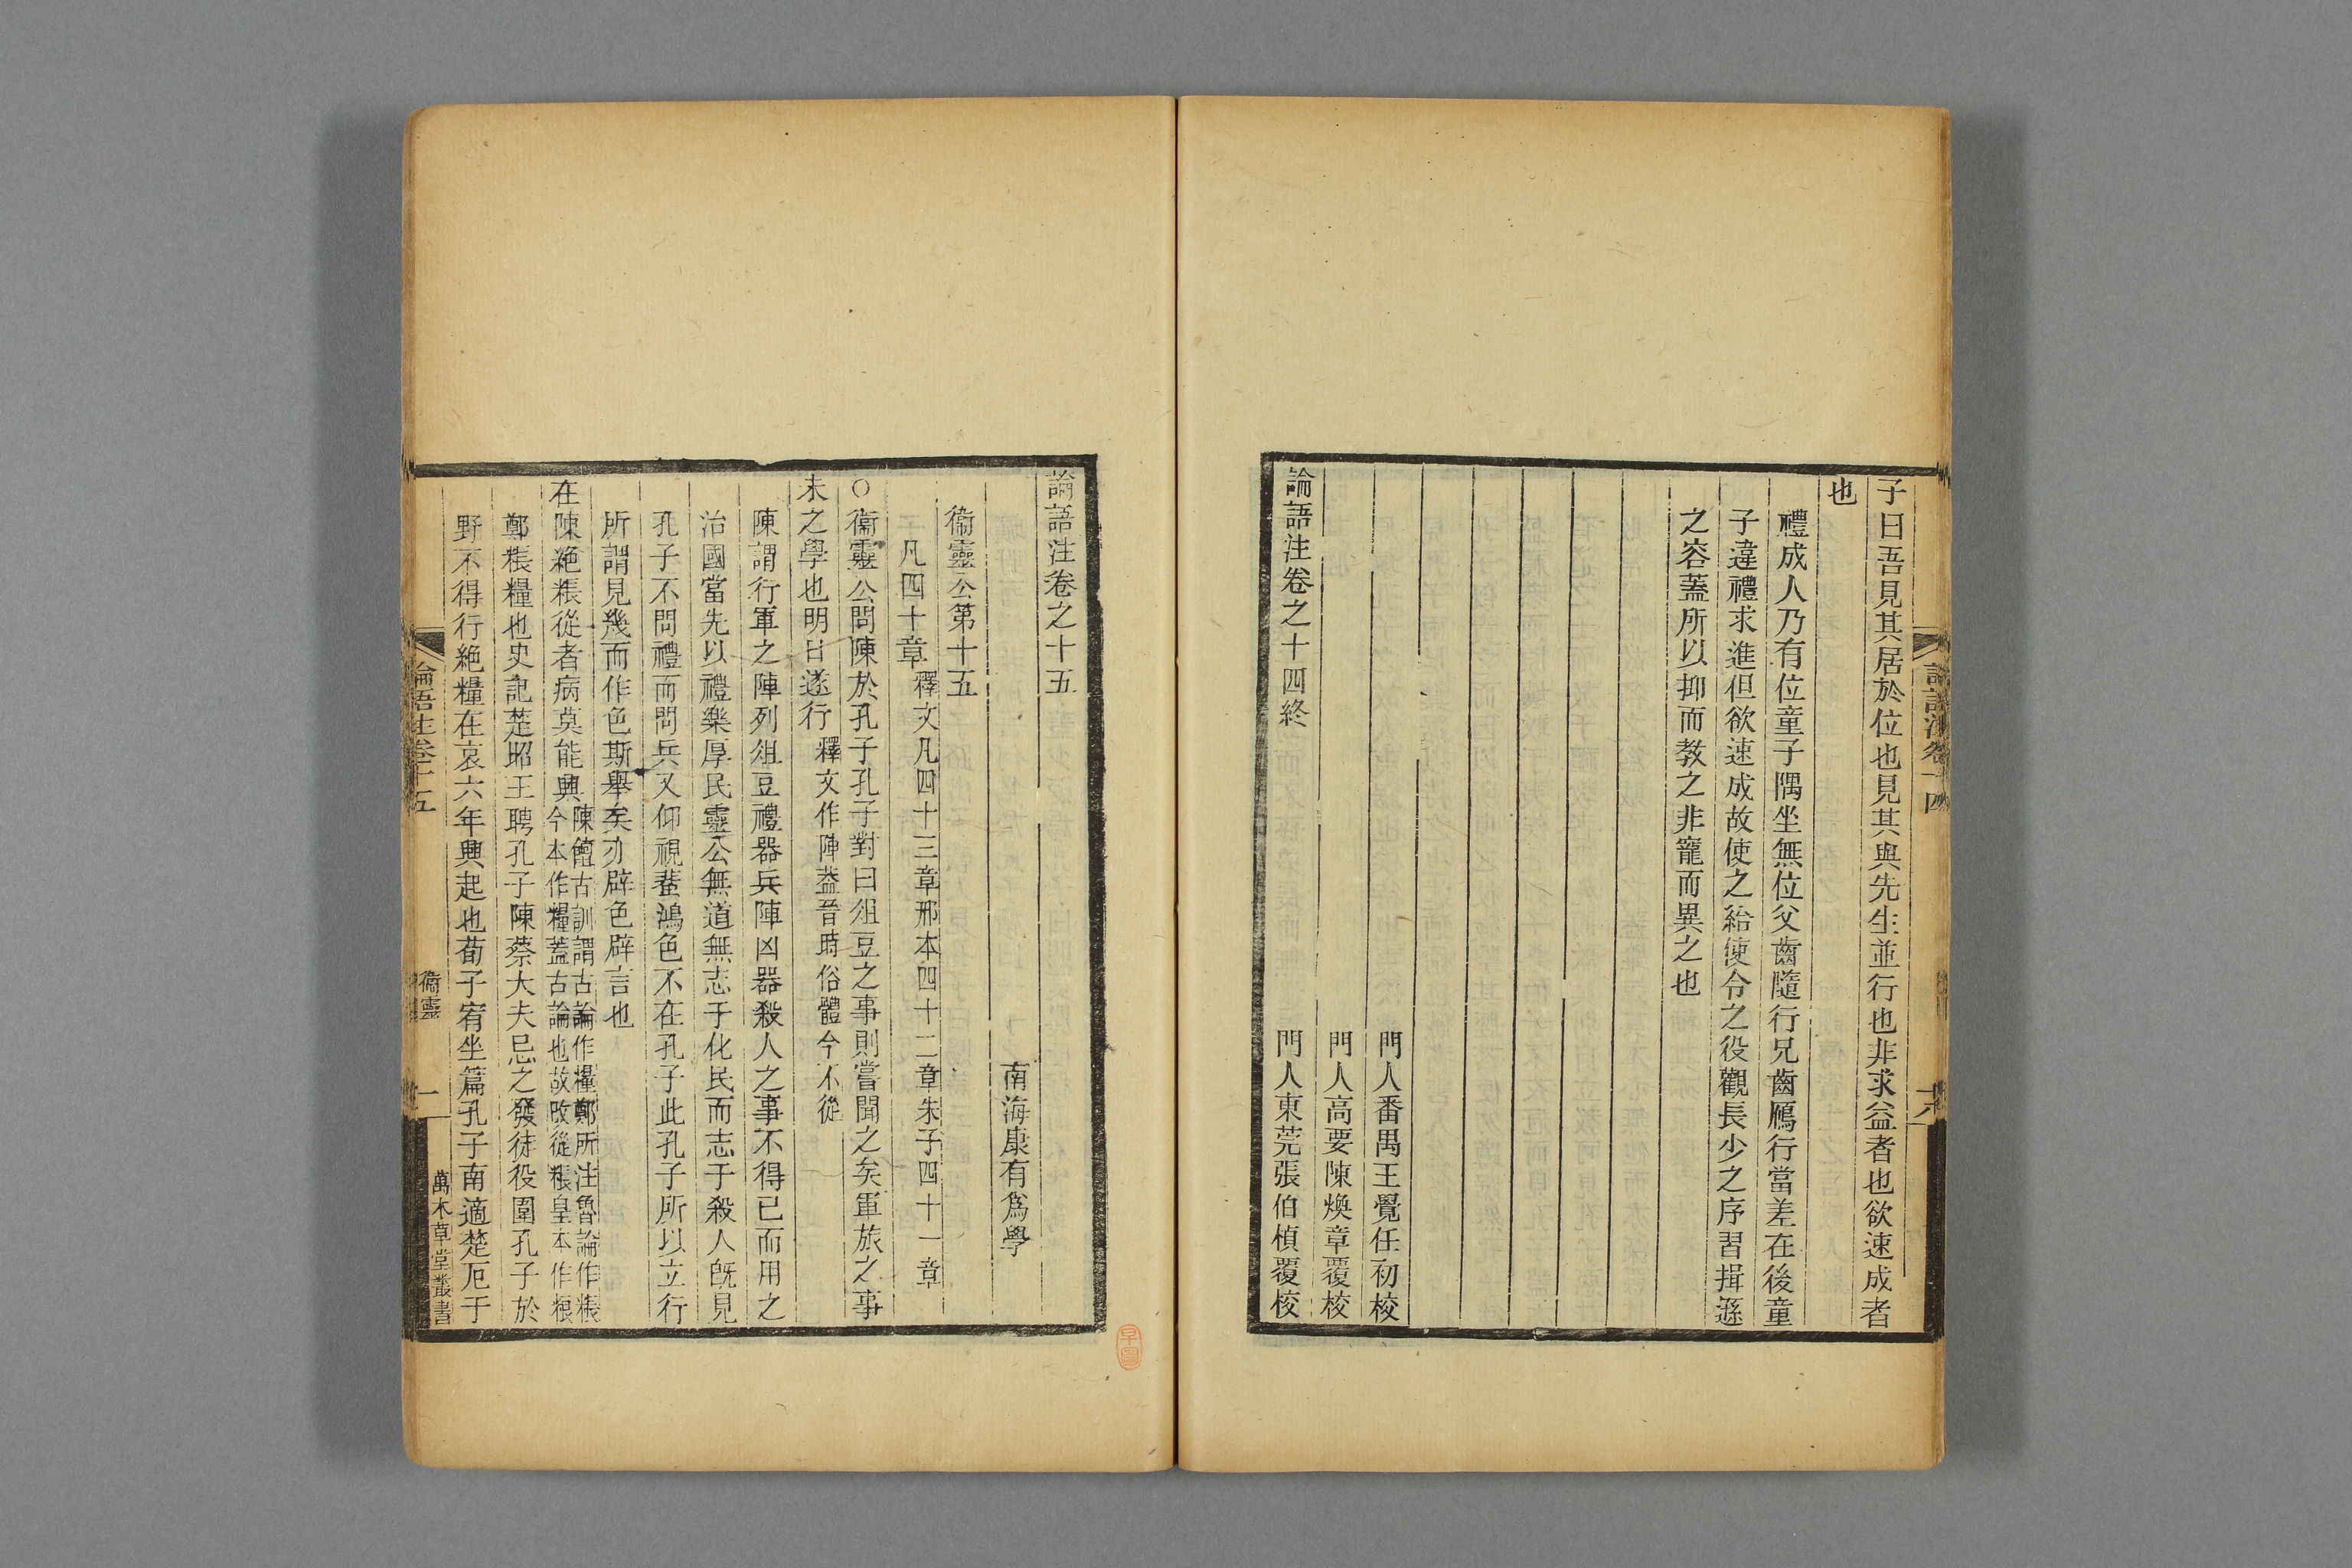 子曰吾見其居於位也見其與先生並行也非求益者也欲速成者
也
禮成人乃有位童子隅坐無位父齒隨行兄齒鴈行當差在後童
子違禮求進但欲速成故使之給使令之役觀長少之序習揖遜
之容蓋所以抑而教之非寵而異之也
門人番禺王覺任初校
門人高要陳煥章覆校
論語注卷之十四終
門人東莞張伯楨覆校
論語注卷十四
論語注卷之十五
南海康有爲學
衞靈公第十五
凡四十章
釋文凡四十三章邢本四十二章朱子四十一章
○衞靈公問陳於孔子孔子對曰俎豆之事則嘗聞之矣軍旅之事
未之學也明日遂行
釋文作陣葢晉時俗體今不從
陳謂行軍之陣列俎豆禮器兵陣凶器殺人之事不得已而用之
治國當先以禮樂厚民靈公無道無志于化民而志于殺人旣見
孔子不問禮而問兵又仰視蜚鴻色不在孔子此孔子所以立行
所謂見幾而作色斯舉矣亦辟色辟言也
在陳絶粻從者病莫能興
陳鱣古訓謂古論作糧鄭所注魯論作粻
今本作糧蓋古論也故改從粻皇本作粮
鄭粻糧也史記楚昭王聘孔子陳蔡大夫忌之發徒役圍孔子於
野不得行絶糧在哀六年興起也荀子宥坐篇孔子南適楚厄于
論語注卷十五
衞靈
一
萬木草堂叢書